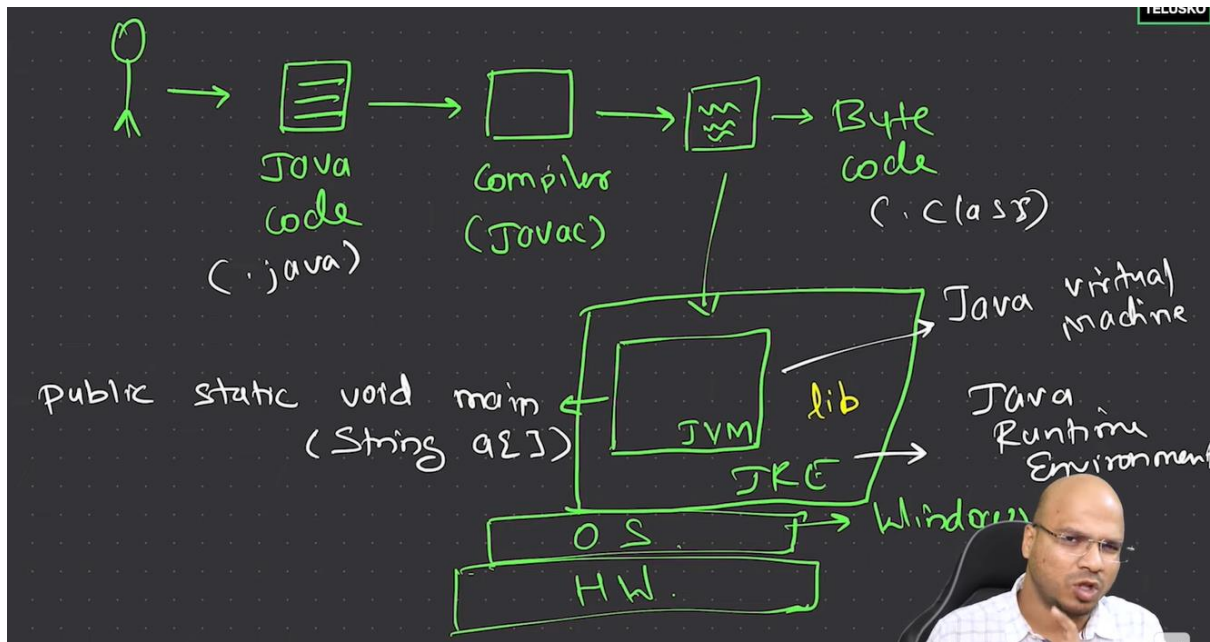 TELUSKO
Java
code
(.java)
Compiler
(Javac)
Byte
code
(.class)
Java virtual
Machine
public static void main
(String a[])
lib
JVM
JRE
Java
Runtime
Environment
OS.
Windows
HW.